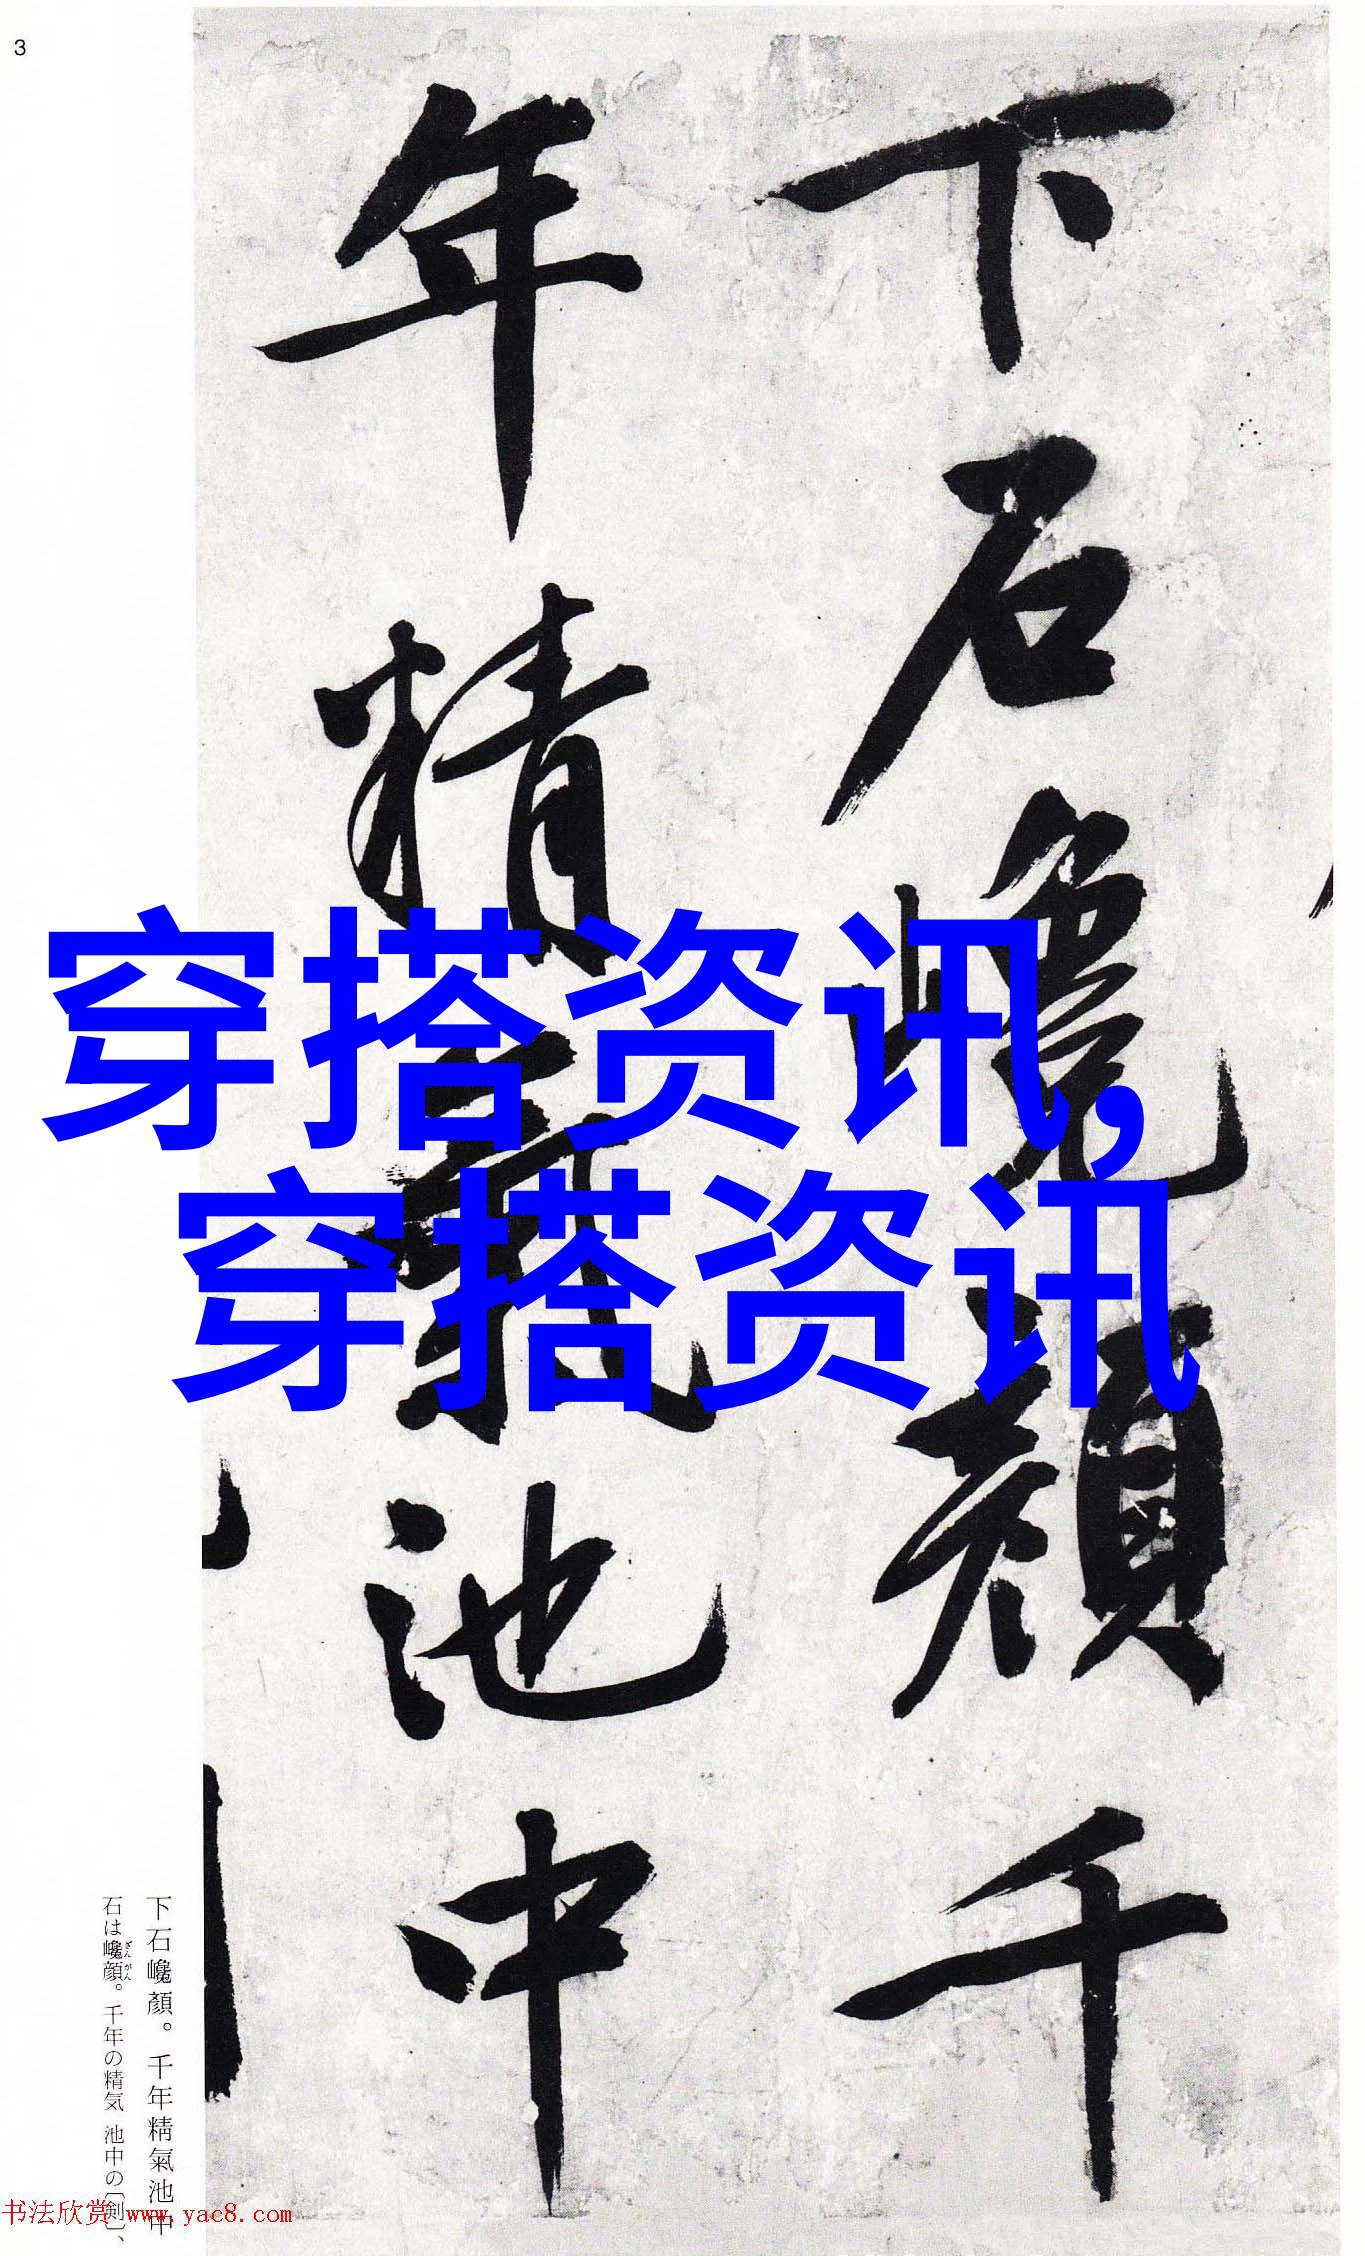 3
下石巉顔千
年精氣池中
穿搭资讯,
穿搭资讯
下石巉顏。千年精氣池中
石は巉顔。千年の精気 池中の〔剣〕、
ざんがん
书法欣赏 www.yac8.com